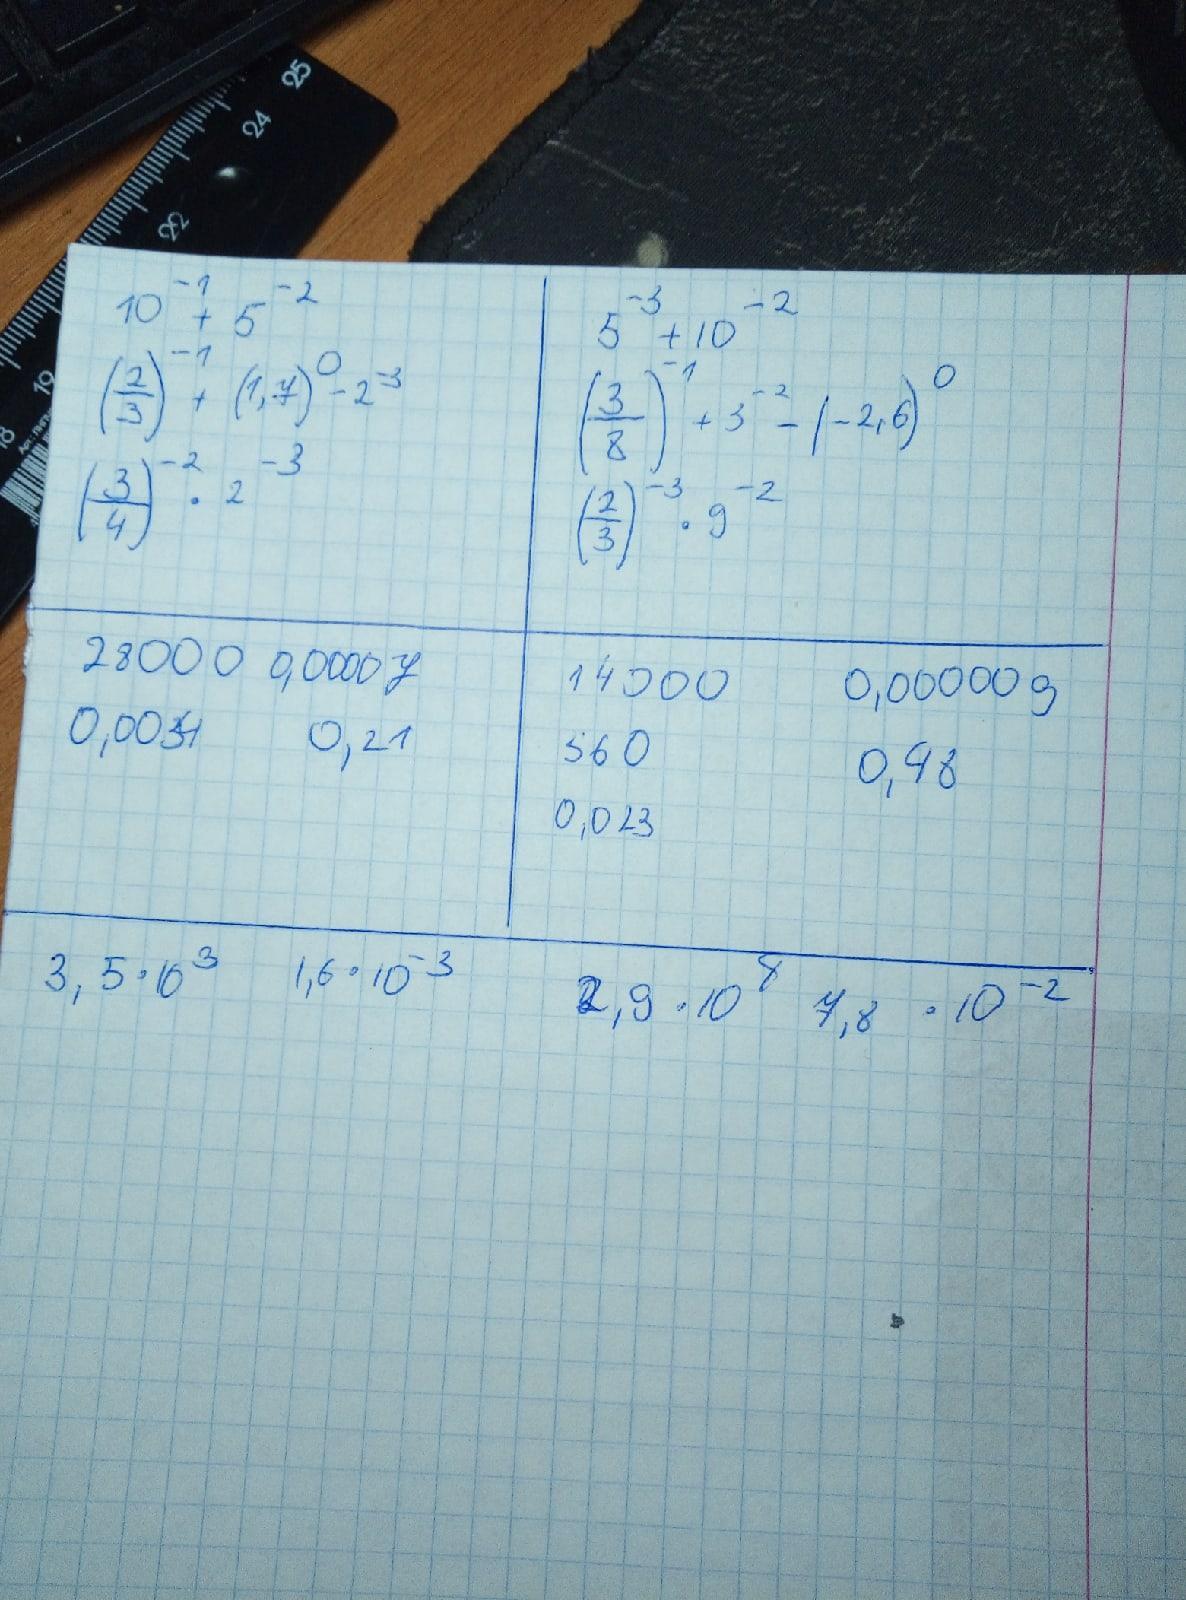 25
24
22
19
18
10⁻¹ + 5⁻²
(2/3)⁻¹ + (1,7)⁰ - 2⁻³
(3/4)⁻² · 2⁻³
5⁻³ + 10⁻²
(3/8)⁻¹ + 3⁻² - (-2,6)⁰
(2/3)⁻³ · 9⁻²
28000 0,00007
0,21
14000 0,000009
560 0,98
0,023
3,5·10³ 1,6·10⁻³
2,9·10⁸ 7,8·10⁻²